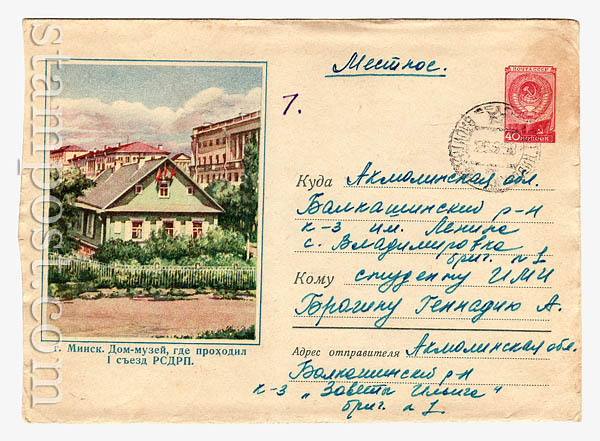 Местное.
1.
ПОЧТА СССР
40 КОПЕЕК
Куда Акмолинская обл.
Балкашинский р-н
к-з им. Ленина
с. Владимировка
бриг. №1
Кому студенту
Брагину Геннадию А.
Адрес отправителя Акмолинская обл.
Балкашинский р-н
к-з „Заветы Ильича“
бриг. №1.
г. Минск. Дом-музей, где проходил
I съезд РСДРП.
stamp-post.com
stamp-post.com